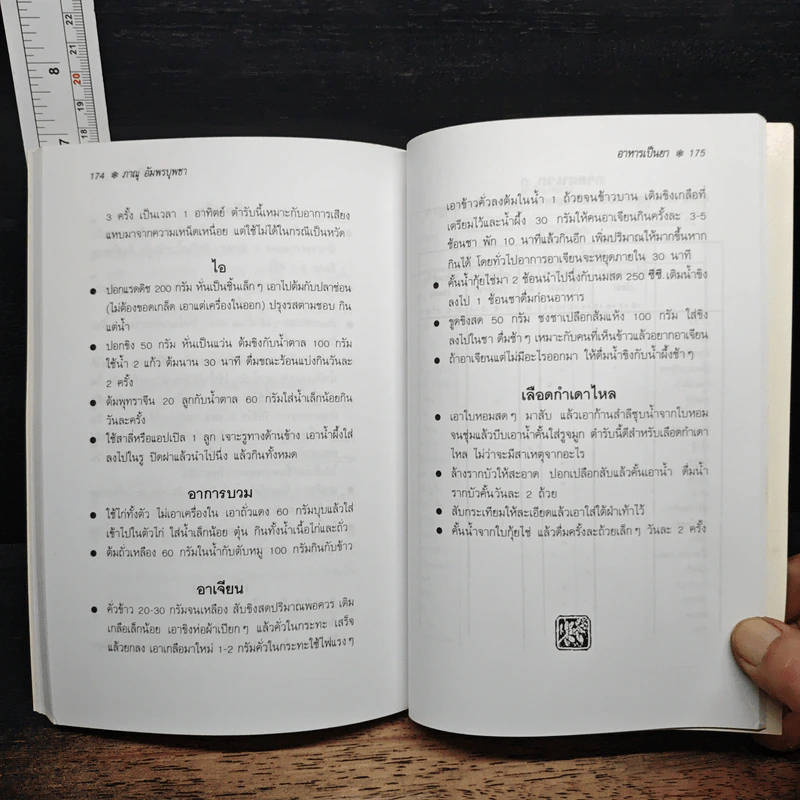 22
21
8
20
19
7
18
17
174 ❋ ภาณุ อัมพรบุพชา
3 ครั้ง เป็นเวลา 1 อาทิตย์ ตำรับนี้เหมาะกับอาการเสียง
แหบมาจากความเหน็ดเหนื่อย แต่ใช้ไม่ได้ในกรณีเป็นหวัด
ไอ
● ปอกแรดดิช 200 กรัม หั่นเป็นชิ้นเล็กๆ เอาไปต้มกับปลาช่อน
(ไม่ต้องขอดเกล็ด เอาแต่เครื่องในออก) ปรุงรสตามชอบ กิน
แต่น้ำ
● ปอกขิง 50 กรัม หั่นเป็นแว่น ต้มขิงกับน้ำตาล 100 กรัม
ใช้น้ำ 2 แก้ว ต้มนาน 30 นาที ดื่มขณะร้อนแบ่งกินวันละ
2 ครั้ง
● ต้มพุทราจีน 20 ลูกกับน้ำตาล 60 กรัมใส่น้ำเล็กน้อยกิน
วันละครั้ง
● ใช้สาลี่หรือแอปเปิล 1 ลูก เจาะรูทางด้านข้าง เอาน้ำผึ้งใส่
ลงไปในรู ปิดฝาแล้วนำไปนึ่ง แล้วกินทั้งหมด
อาการบวม
● ใช้ไก่ทั้งตัว ไม่เอาเครื่องใน เอาถั่วแดง 60 กรัมบุบแล้วใส่
เข้าไปในตัวไก่ ใส่น้ำเล็กน้อย ตุ๋น กินทั้งน้ำเนื้อไก่และถั่ว
● ต้มถั่วเหลือง 60 กรัมในน้ำกับตับหมู 100 กรัมกินกับข้าว
อาเจียน
● คั่วข้าว 20-30 กรัมจนเหลือง สับขิงสดปริมาณพอควร เติม
เกลือเล็กน้อย เอาขิงห่อผ้าเปียกๆ แล้วคั่วในกระทะ เสร็จ
แล้วยกลง เอาเกลือมาใหม่ 1-2 กรัมคั่วในกระทะใช้ไฟแรงๆ
อาหารเป็นยา ❋ 175
เอาข้าวคั่วลงต้มในน้ำ 1 ถ้วยจนข้าวบาน เติมขิงเกลือที่
เตรียมไว้และน้ำผึ้ง 30 กรัมให้คนอาเจียนกินครั้งละ 3-5
ช้อนชา พัก 10 นาทีแล้วกินอีก เพิ่มปริมาณให้มากขึ้นหาก
กินได้ โดยทั่วไปอาการอาเจียนจะหยุดภายใน 30 นาที
● คั้นน้ำกุ้ยไช่มา 2 ช้อนนำไปนึ่งกับนมสด 250 ซีซี.เติมน้ำขิง
ลงไป 1 ช้อนชาดื่มก่อนอาหาร
● ขูดขิงสด 50 กรัม ชงชาเปลือกส้มแห้ง 100 กรัม ใส่ขิง
ลงไปในชา ดื่มช้าๆ เหมาะกับคนที่เห็นข้าวแล้วอยากอาเจียน
● ถ้าอาเจียนแต่ไม่มีอะไรออกมา ให้ดื่มน้ำขิงกับน้ำผึ้งช้าๆ
เลือดกำเดาไหล
● เอาใบหอมสดๆ มาสับ แล้วเอาก้านสำลีชุบน้ำจากใบหอม
จนชุ่มแล้วบีบเอาน้ำคั้นใส่รูจมูก ตำรับนี้ดีสำหรับเลือดกำเดา
ไหล ไม่ว่าจะมีสาเหตุจากอะไร
● ล้างรากบัวให้สะอาด ปอกเปลือกสับแล้วคั้นเอาน้ำ ดื่มน้ำ
รากบัวคั้นวันละ 2 ถ้วย
● สับกระเทียมให้ละเอียดแล้วเอาใส่ใต้ฝ่าเท้าไว้
● คั้นน้ำจากใบกุ้ยไช่ แล้วดื่มครั้งละถ้วยเล็กๆ วันละ 2 ครั้ง